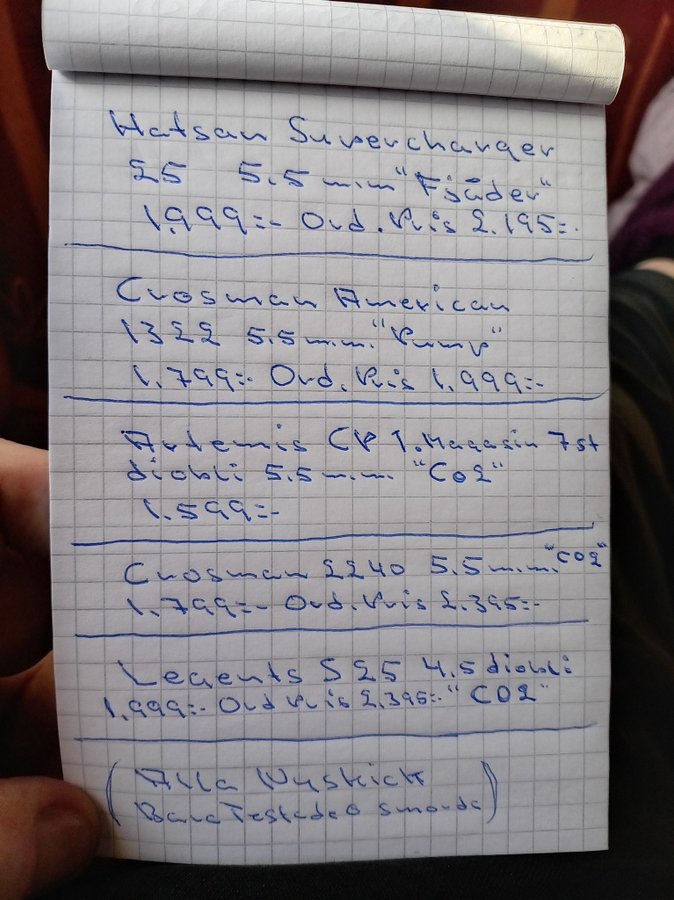 Hatsan Supercharger
25 5.5 m.m "Fjäder"
1.999:- Ord. Pris 2.195:-
Crosman American
1322 5.5 m.m. "Pump"
1.799:- Ord. Pris 1.999:-
Artemis CP 1. Magasin 7st
diobli 5.5 m.m. "Co2"
1.599:-
Crosman 2240 5.5 m.m. "CO2"
1.799:- Ord. Pris 2.395:-
Legents S25 4.5 diobli
1.999:- Ord Pris 2.395:- "CO2"
(Alla Nyskick
Bara Testade smorda)